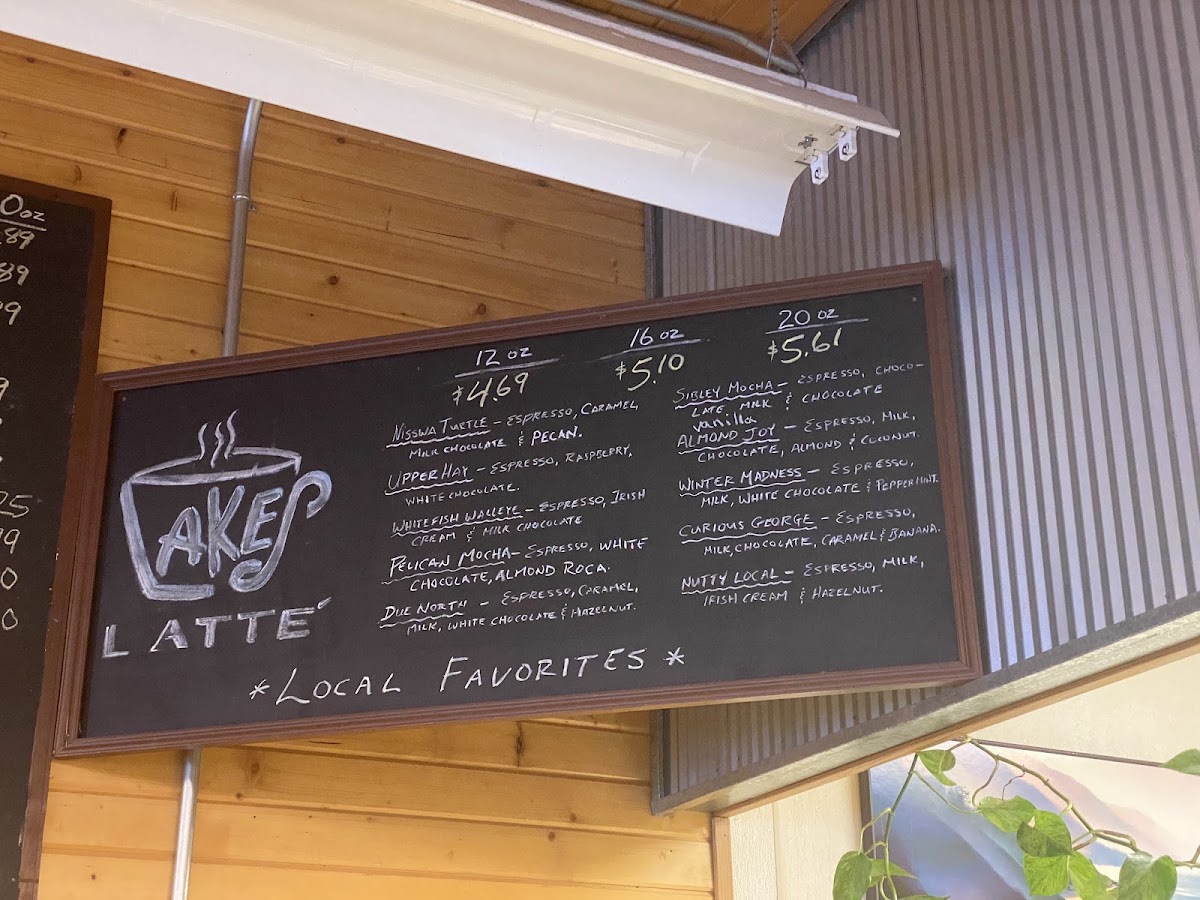 0oz
89
89
9
9
25
99
0
0
LAKES
LATTÉ
12 oz
$4.69
16 oz
$5.10
20 oz
$5.61
NISSWA TURTLE - ESPRESSO, CARAMEL,
MILK CHOCOLATE & PECAN.
UPPER HAY - ESPRESSO, RASPBERRY,
WHITE CHOCOLATE.
WHITEFISH WALLEYE - ESPRESSO, IRISH
CREAM & MILK CHOCOLATE
PELICAN MOCHA - ESPRESSO, WHITE
CHOCOLATE, ALMOND ROCA.
DUE NORTH - ESPRESSO, CARAMEL,
MILK, WHITE CHOCOLATE & HAZELNUT.
SIBLEY MOCHA - ESPRESSO, CHOCO-
LATE, MILK & CHOCOLATE
vanilla
ALMOND JOY - ESPRESSO, MILK,
CHOCOLATE, ALMOND & COCONUT.
WINTER MADNESS - ESPRESSO,
MILK, WHITE CHOCOLATE & PEPPERMINT.
CURIOUS GEORGE - ESPRESSO,
MILK, CHOCOLATE, CARAMEL & BANANA.
NUTTY LOCAL - ESPRESSO, MILK,
IRISH CREAM & HAZELNUT.
* LOCAL FAVORITES *